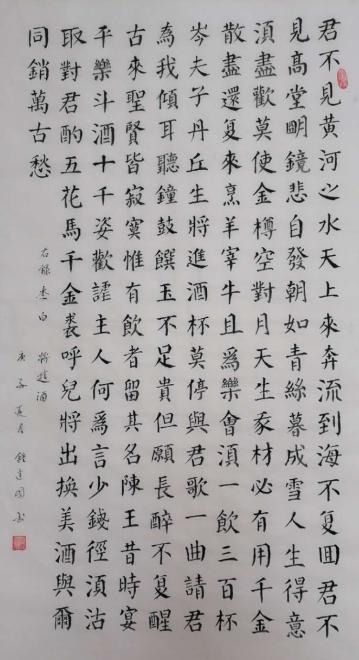 君不見黃河之水天上來奔流到海不复囬君不
見高堂眀鏡悲自發朝如青絲暮成雪人生得意
湏盡歡莫使金樽空對月天生我材必有用千金
散盡還复來烹羊宰牛且為樂會湏一飲三百杯
岑夫子丹丘生將進酒杯莫停與君歌一曲請君
為我傾耳聽鐘鼓饌玉不足貴但願長醉不复醒
古來聖賢皆寂寞惟有飲者留其名陳王昔時宴
平樂斗酒十千姿歡謔主人何為言少錢徑湏沽
取對君酌五花馬千金裘呼兒將出換美酒與爾
同銷萬古愁
右錄李白 將進酒
庚子夏月 鍾建國书